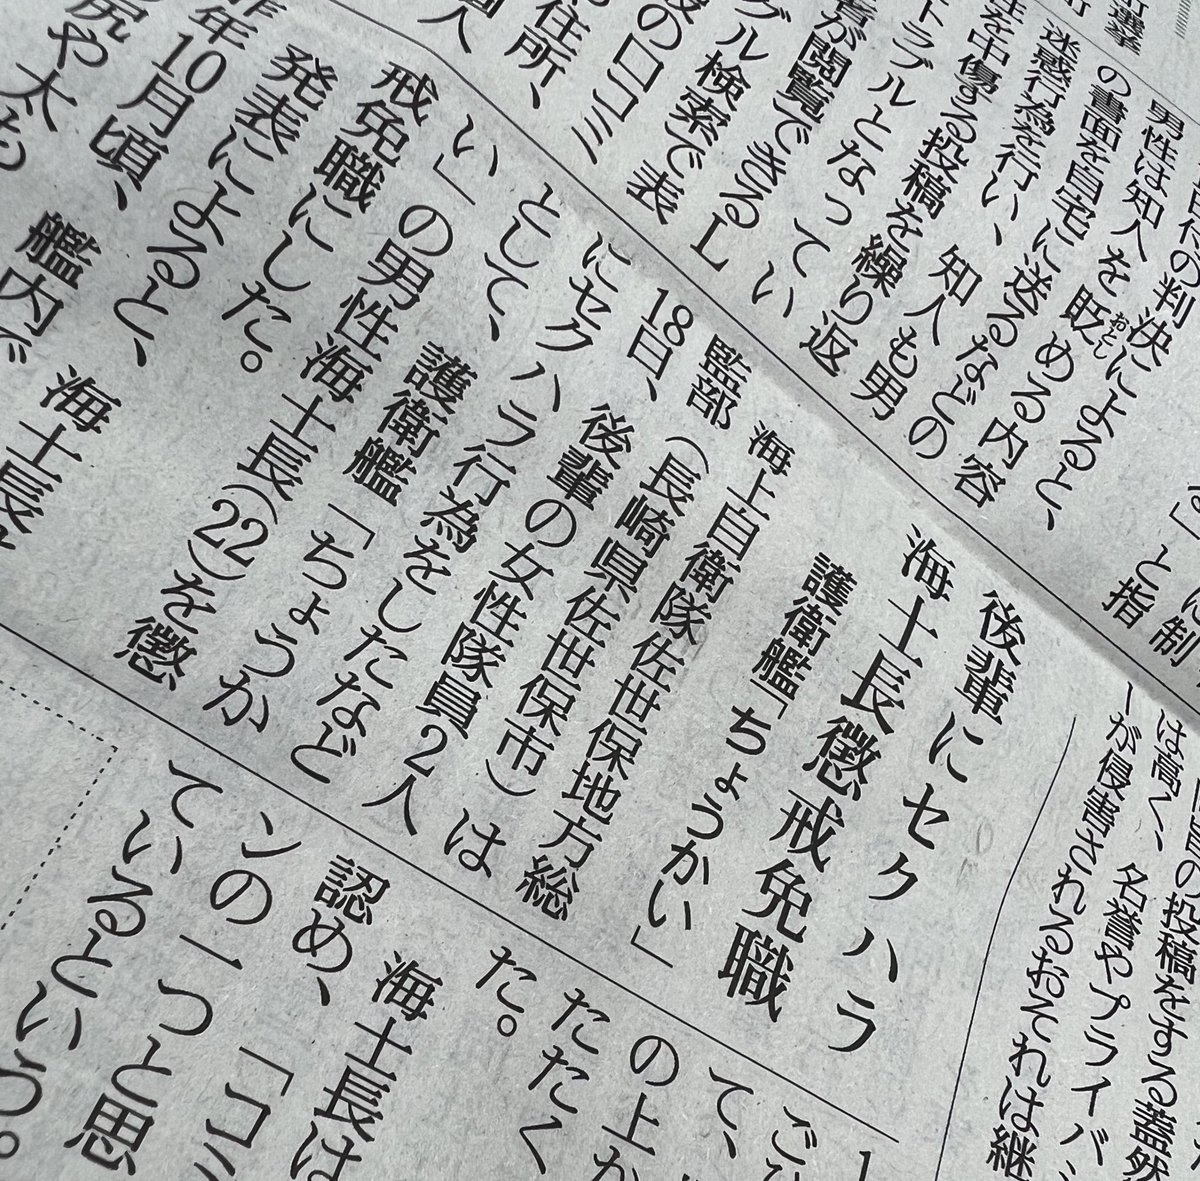 の判決によると、
男性は知人を貶める内容
おとし
の書面を自宅に送るなどの
迷惑行為を行い、知人も男
性を中傷する投稿を繰り返
トラブルとなってい
者が閲覧できるL
グル検索で表
の口コミ
住所、
個人
に制
」と指
の投稿をする蓋然
は高く、名誉やプライバシ
ーが侵害されるおそれは継
後輩にセクハラ
海士長懲戒免職
護衛艦「ちょうかい」
海上自衛隊佐世保地方総
監部(長崎県佐世保市)は
18日、後輩の女性隊員2人
にセクハラ行為をしたなど
として、護衛艦「ちょうか
い」の男性海士長(22)を懲
戒免職にした。
発表によると、海士長は
昨年10月頃、艦内で
尻や太も
て、
の上か
たたく
た。
海士長は
認め、「コミ
ンの一つと思
ているという。